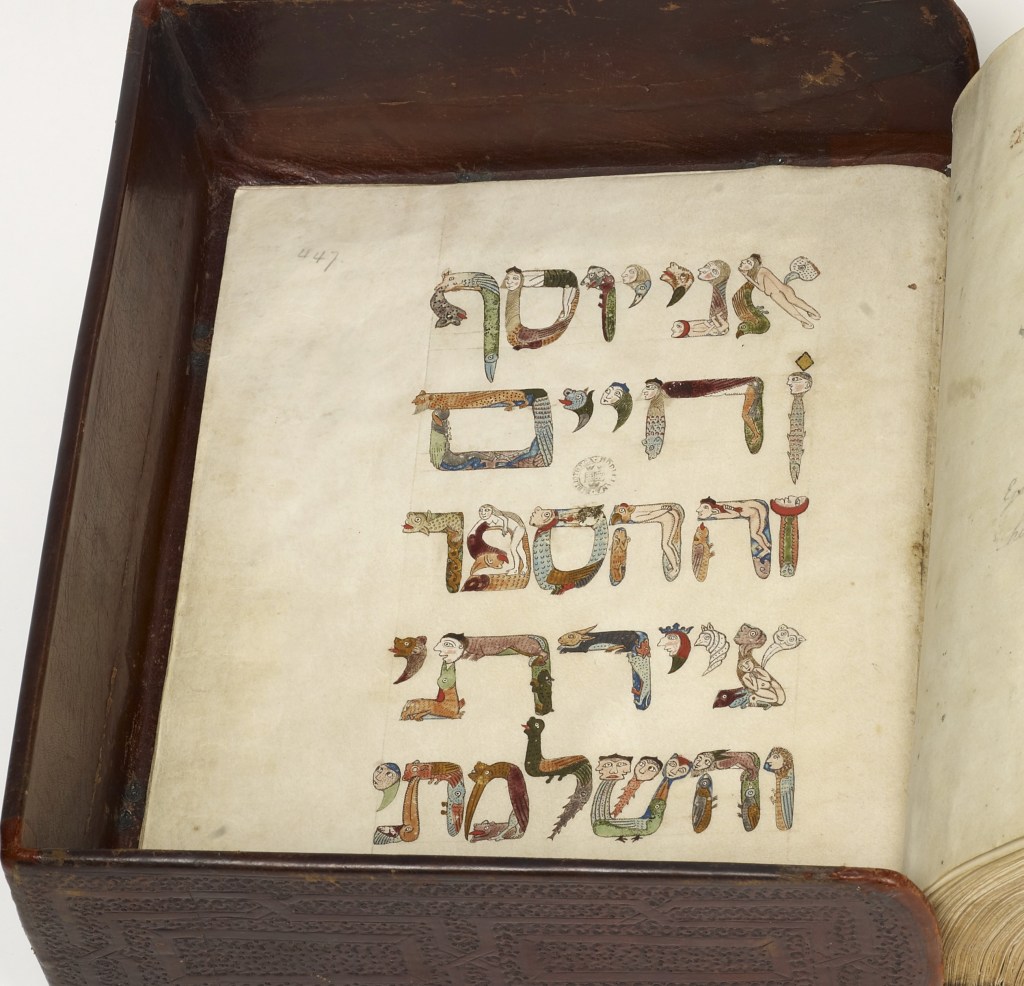 447.
אני יוסף
ן חיים
זה הספר
ציירתי
והשלמתי